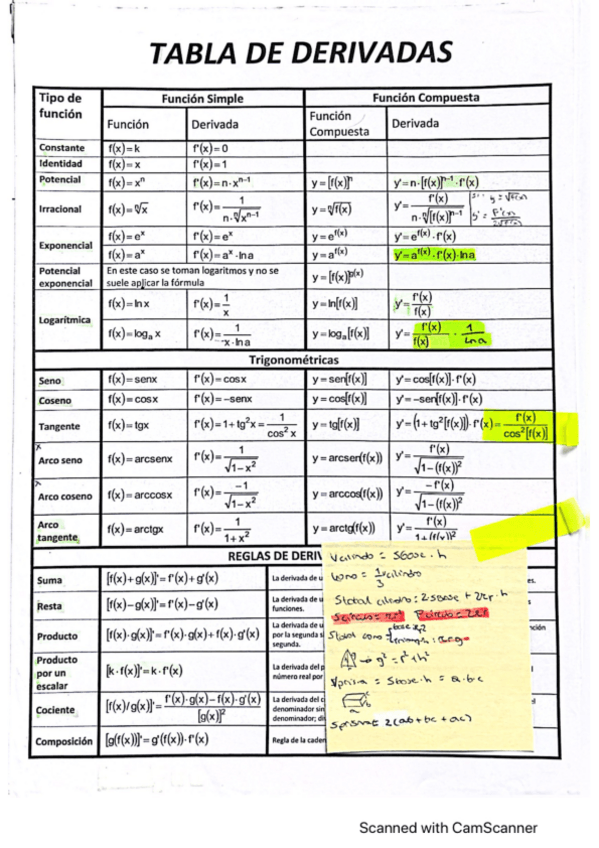 TABLA DE DERIVADAS
Tipo de función | Función Simple | Función Compuesta
Función | Derivada | Función Compuesta | Derivada
Constante | f(x) = k | f'(x) = 0
Identidad | f(x) = x | f'(x) = 1
Potencial | f(x) = xⁿ | f'(x) = n·xⁿ⁻¹ | y = [f(x)]ⁿ | y' = n·[f(x)]ⁿ⁻¹·f'(x)
Irracional | f(x) = ⁿ√x | f'(x) = 1/(n·ⁿ√xⁿ⁻¹) | y = ⁿ√f(x) | y' = f'(x)/(n·ⁿ√[f(x)]ⁿ⁻¹) | y = √f(x) y' = f'(x)/(2√f(x))
Exponencial | f(x) = eˣ | f'(x) = eˣ | y = e^f(x) | y' = e^f(x)·f'(x)
f(x) = aˣ | f'(x) = aˣ·lna | y = a^f(x) | y' = a^f(x)·f'(x)·lna
Potencial exponencial | En este caso se toman logaritmos y no se suele aplicar la fórmula | y = [f(x)]^g(x)
Logarítmica | f(x) = lnx | f'(x) = 1/x | y = ln[f(x)] | y' = f'(x)/f(x)
f(x) = logₐx | f'(x) = 1/(x·lna) | y = logₐ[f(x)] | y' = f'(x)/f(x) · 1/lna
Trigonométricas
Seno | f(x) = senx | f'(x) = cosx | y = sen[f(x)] | y' = cos[f(x)]·f'(x)
Coseno | f(x) = cosx | f'(x) = -senx | y = cos[f(x)] | y' = -sen[f(x)]·f'(x)
Tangente | f(x) = tgx | f'(x) = 1 + tg²x = 1/cos²x | y = tg[f(x)] | y' = (1 + tg²[f(x)])·f'(x) = f'(x)/cos²[f(x)]
Arco seno | f(x) = arcsenx | f'(x) = 1/√(1-x²) | y = arcsen(f(x)) | y' = f'(x)/√(1-(f(x))²)
Arco coseno | f(x) = arccosx | f'(x) = -1/√(1-x²) | y = arccos(f(x)) | y' = -f'(x)/√(1-(f(x))²)
Arco tangente | f(x) = arctgx | f'(x) = 1/(1+x²) | y = arctg(f(x)) | y' = f'(x)/(1+(f(x))²)
REGLAS DE DERIV
Suma | [f(x)+g(x)]' = f'(x)+g'(x) | La derivada de u
Resta | [f(x)-g(x)]' = f'(x)-g'(x) | La derivada de u funciones.
Producto | [f(x)·g(x)]' = f'(x)·g(x)+f(x)·g'(x) | La derivada de u por la segunda s segunda.
Producto por un escalar | [k·f(x)]' = k·f'(x) | La derivada del p número real por
Cociente | [f(x)/g(x)]' = (f'(x)·g(x)-f(x)·g'(x))/[g(x)]² | La derivada del c denominador sin denominador; di
Composición | [g(f(x))]' = g'(f(x))·f'(x) | Regla de la caden
Vcilindo = Sbase · h
Vcono = 1/3 cilindro
Stotal cilindro: 2sbase + 2πr·h
g² = r² + h²
Vprisma = Sbase·h = a·b·c
Sprisma: 2(ab + bc + ac)
Scanned with CamScanner